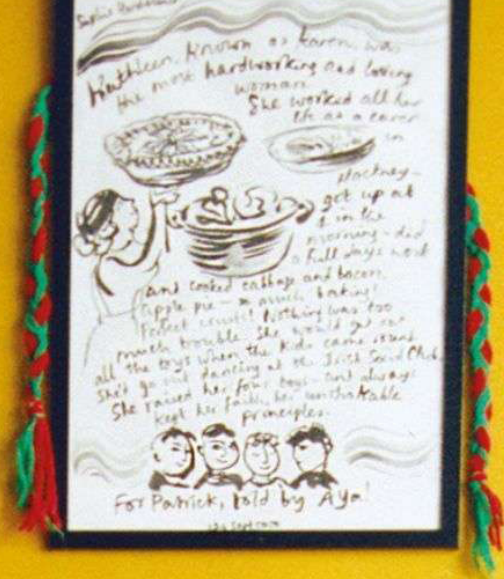 Kathleen, known as Karen, was
the most hardworking and loving
woman.
She worked all her
life as a carer
in
Hackney -
get up at
in the
morning - did
a full days work
and cooked cabbage and bacon,
apple pie - so much baking!
Perfect Nothing was too
much trouble. She would get out
all the toys when the kids came round
She'd go out dancing at the Irish Social Club.
She raised her four boys - and always
kept her faith, her unshakable
principles.
For Patrick, told by Aya!